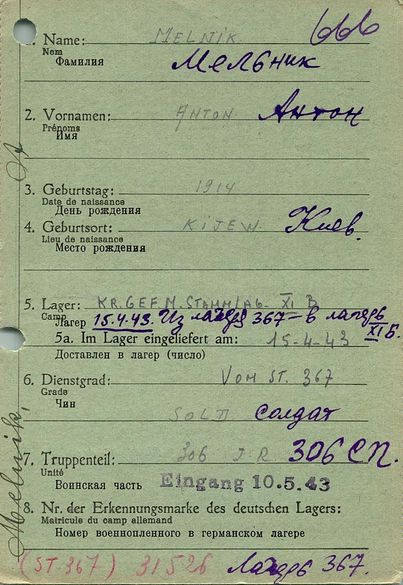 666
1. Name: MELNIK
Nom
Фамилия Мельник
2. Vornamen: ANTON Антон
Prénoms
Имя
3. Geburtstag: 1914
Date de naissance
День рождения
4. Geburtsort: KIJEW Киев.
Lieu de naissance
Место рождения
5. Lager: KR. GEF. M. STAMMLAG. XI B
Camp
Лагер 15.4.43. Из лагеря 367 = в лагерь XI Б.
5a. Im Lager eingeliefert am: 15-4-43
Доставлен в лагер (число)
6. Dienstgrad: VOM ST. 367
Grade
Чин SOLD солдат
7. Truppenteil: 306 I.R 306 СП.
Unité
Воинская часть Eingang 10.5.43
8. Nr. der Erkennungsmarke des deutschen Lagers:
Matricule du camp allemand
Номер военнопленного в германском лагере
(ST. 367) 31526 Лагерь 367.
Melnik,